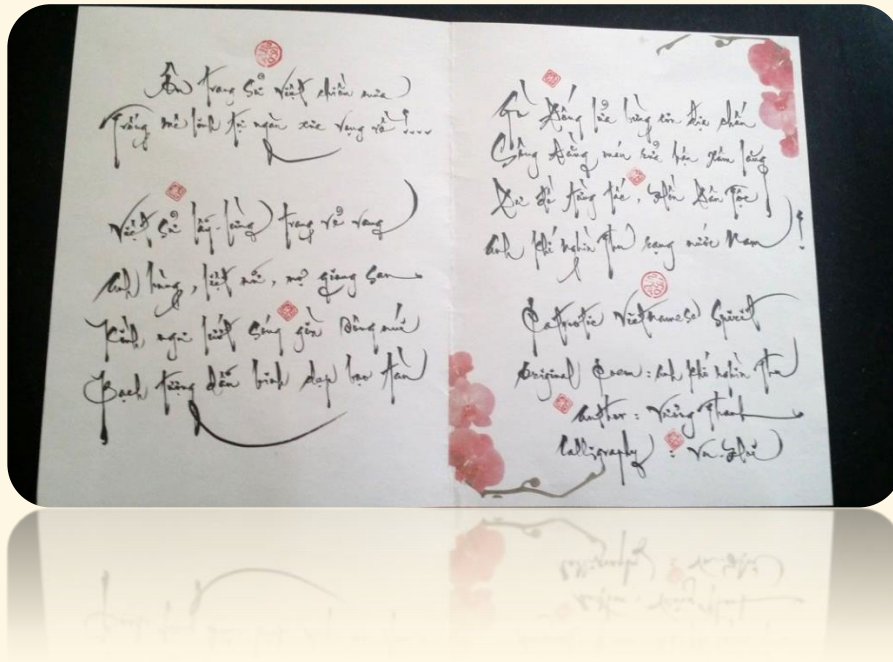 Ôn trang sử Việt chiều mưa
Trống mê linh tự ngàn xưa vọng về!...
Việt sử lẫy-lừng trang vẻ vang
Anh hùng, liệt nữ, mở giang san
Kình ngư lướt sóng gìn Đông hải
Bạch tượng dẫn binh đạp bạo tàn
Gò Đống lửa bừng rơn địa chấn
Sông Đằng máu
tấc, Hồn Dân Tộc
Anh khí nghìn Thu rạng nước Nam!
Patriotic Vietnamese Spirit
Original Poem: Anh khí nghìn Thu
Author: Vương Thanh
Calligraphy: Vũ Hối